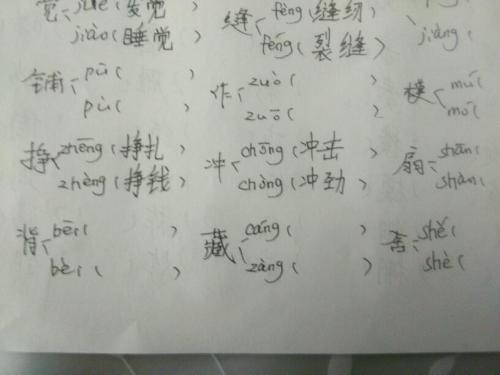 觉 jué (发觉
jiào (睡觉 )
缝 féng (缝纫 )
fèng (裂缝 )
jiàng (
铺 pū ( )
pù ( )
作 zuò ( )
zuō ( )
模 mú (
mó (
挣 zhēng (挣扎 )
zhèng (挣钱 )
冲 chōng (冲击 )
chòng (冲劲 )
扇 shān (
shàn (
背 bēi ( )
bèi ( )
藏 cáng ( )
zàng ( )
舍 shě (
shè (